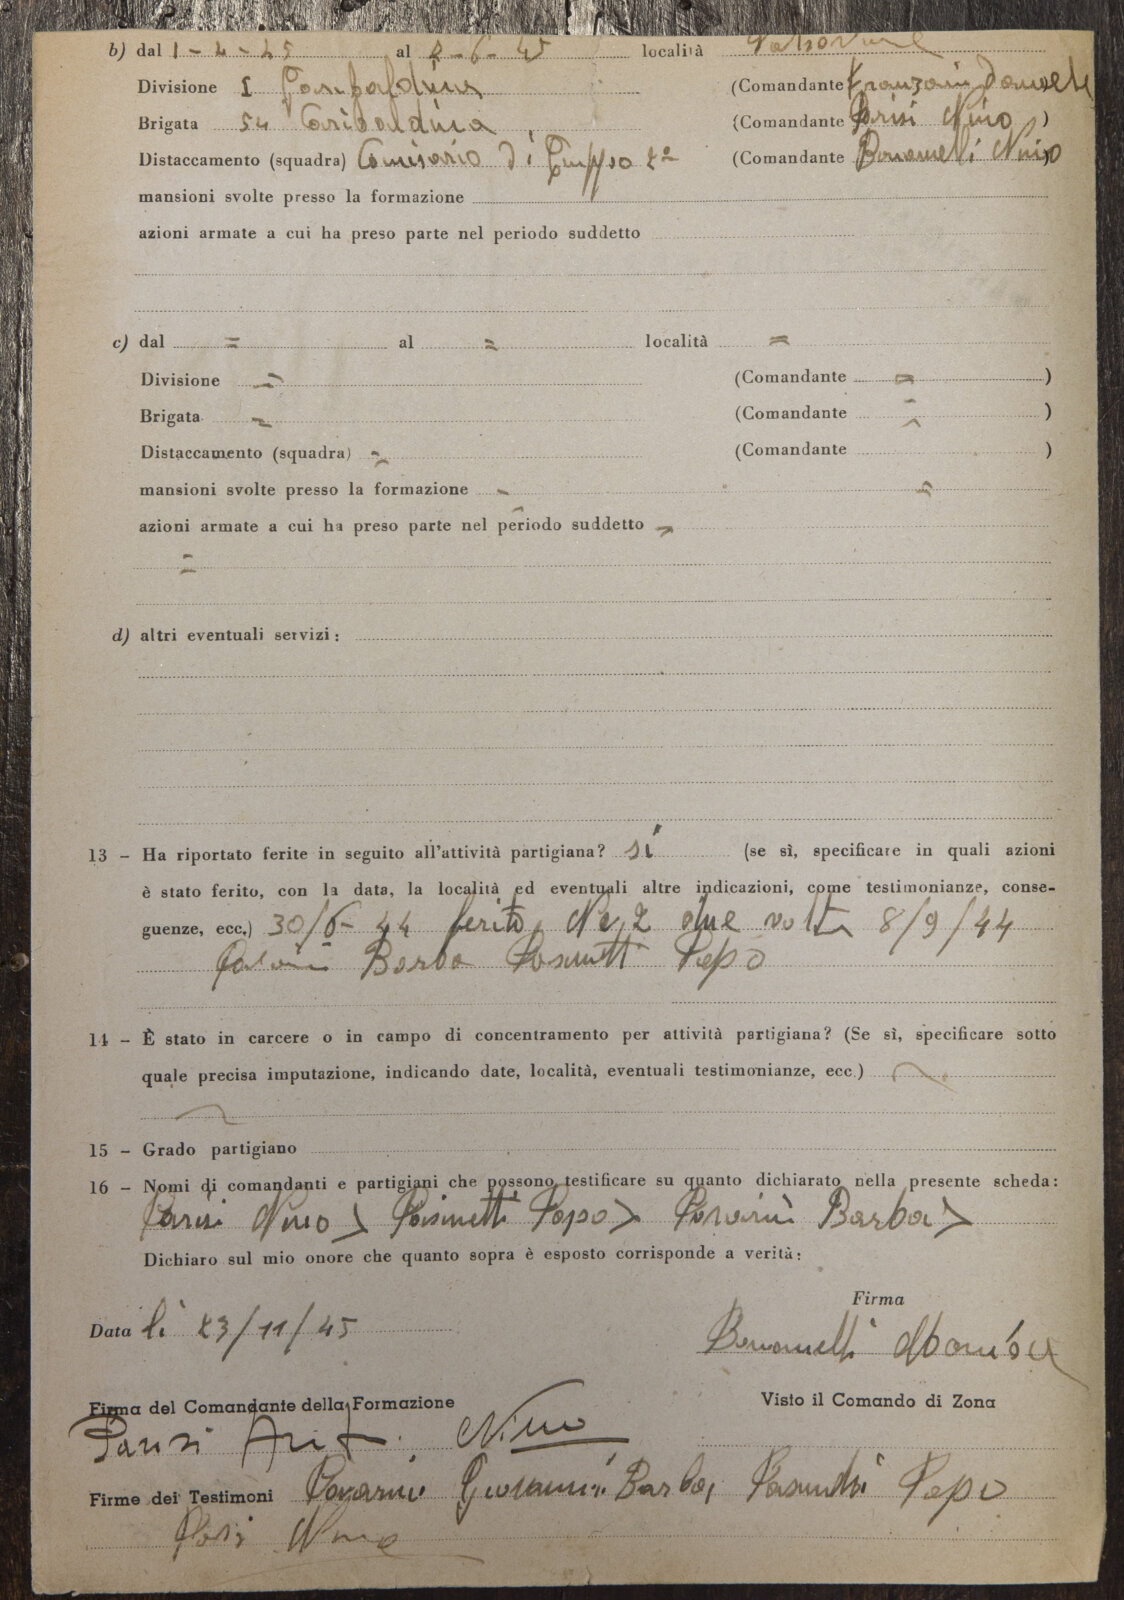 b) dal 1-4-45 al 2-6-45 località
Divisione I Garibaldina (Comandante
Brigata 54 Garibaldina (Comandante Parisi Nino )
Distaccamento (squadra) Comisario di Gruppo 2º (Comandante Bonomelli Nino )
mansioni svolte presso la formazione
azioni armate a cui ha preso parte nel periodo suddetto
c) dal = al = località =
Divisione = (Comandante = )
Brigata = (Comandante = )
Distaccamento (squadra) = (Comandante )
mansioni svolte presso la formazione
azioni armate a cui ha preso parte nel periodo suddetto
=
d) altri eventuali servizi :
13 – Ha riportato ferite in seguito all'attività partigiana? si (se sì, specificare in quali azioni
è stato ferito, con la data, la località ed eventuali altre indicazioni, come testimonianze, conse-
guenze, ecc.) 30/6-44 ferito due volte 8/9/44
Barba Pepo
14 – È stato in carcere o in campo di concentramento per attività partigiana? (Se sì, specificare sotto
quale precisa imputazione, indicando date, località, eventuali testimonianze, ecc.)
15 – Grado partigiano
16 – Nomi di comandanti e partigiani che possono testificare su quanto dichiarato nella presente scheda:
Parisi Nino Barba
Dichiaro sul mio onore che quanto sopra è esposto corrisponde a verità:
Firma
Data li 23/11/45
Bonomelli
Firma del Comandante della Formazione Visto il Comando di Zona
Parisi Nino
Firme dei Testimoni Giovanni Barba, Pepo
Nino